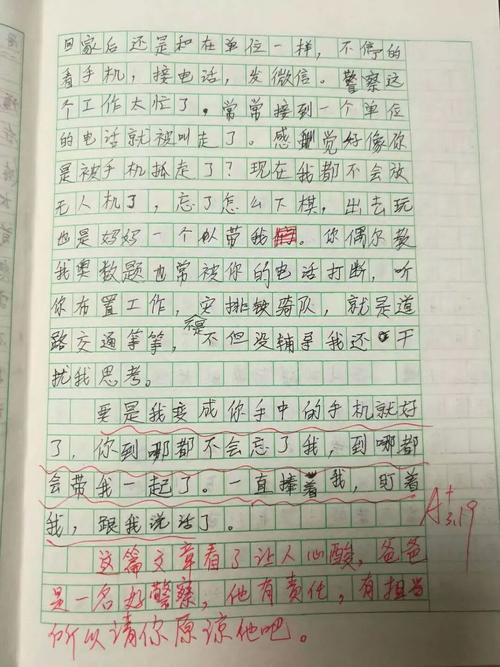 回家后还是和在单位一样，不停的
看手机，接电话，发微信。警察这
个工作太忙了，常常接到一个单位
的电话就被叫走了。感觉好像你
是被手机抓走了？现在我都不会放
无人机了，忘了怎么下棋，出去玩
也是妈妈一个人带我。你偶尔教
我奥数题也常被你的电话打断，听
你布置工作，安排铁骑队，就是道
路交通等等，不但没辅导我还干
扰我思考。
要是我变成你手中的手机就好
了，你到哪都不会忘了我，到哪都
会带我一起了。一直捧着我，盯着
我，跟我说话了。
A+
3.19
这篇文章看了让人心酸，爸爸
是一名好警察，他有责任，有担当
所以请你原谅他吧。